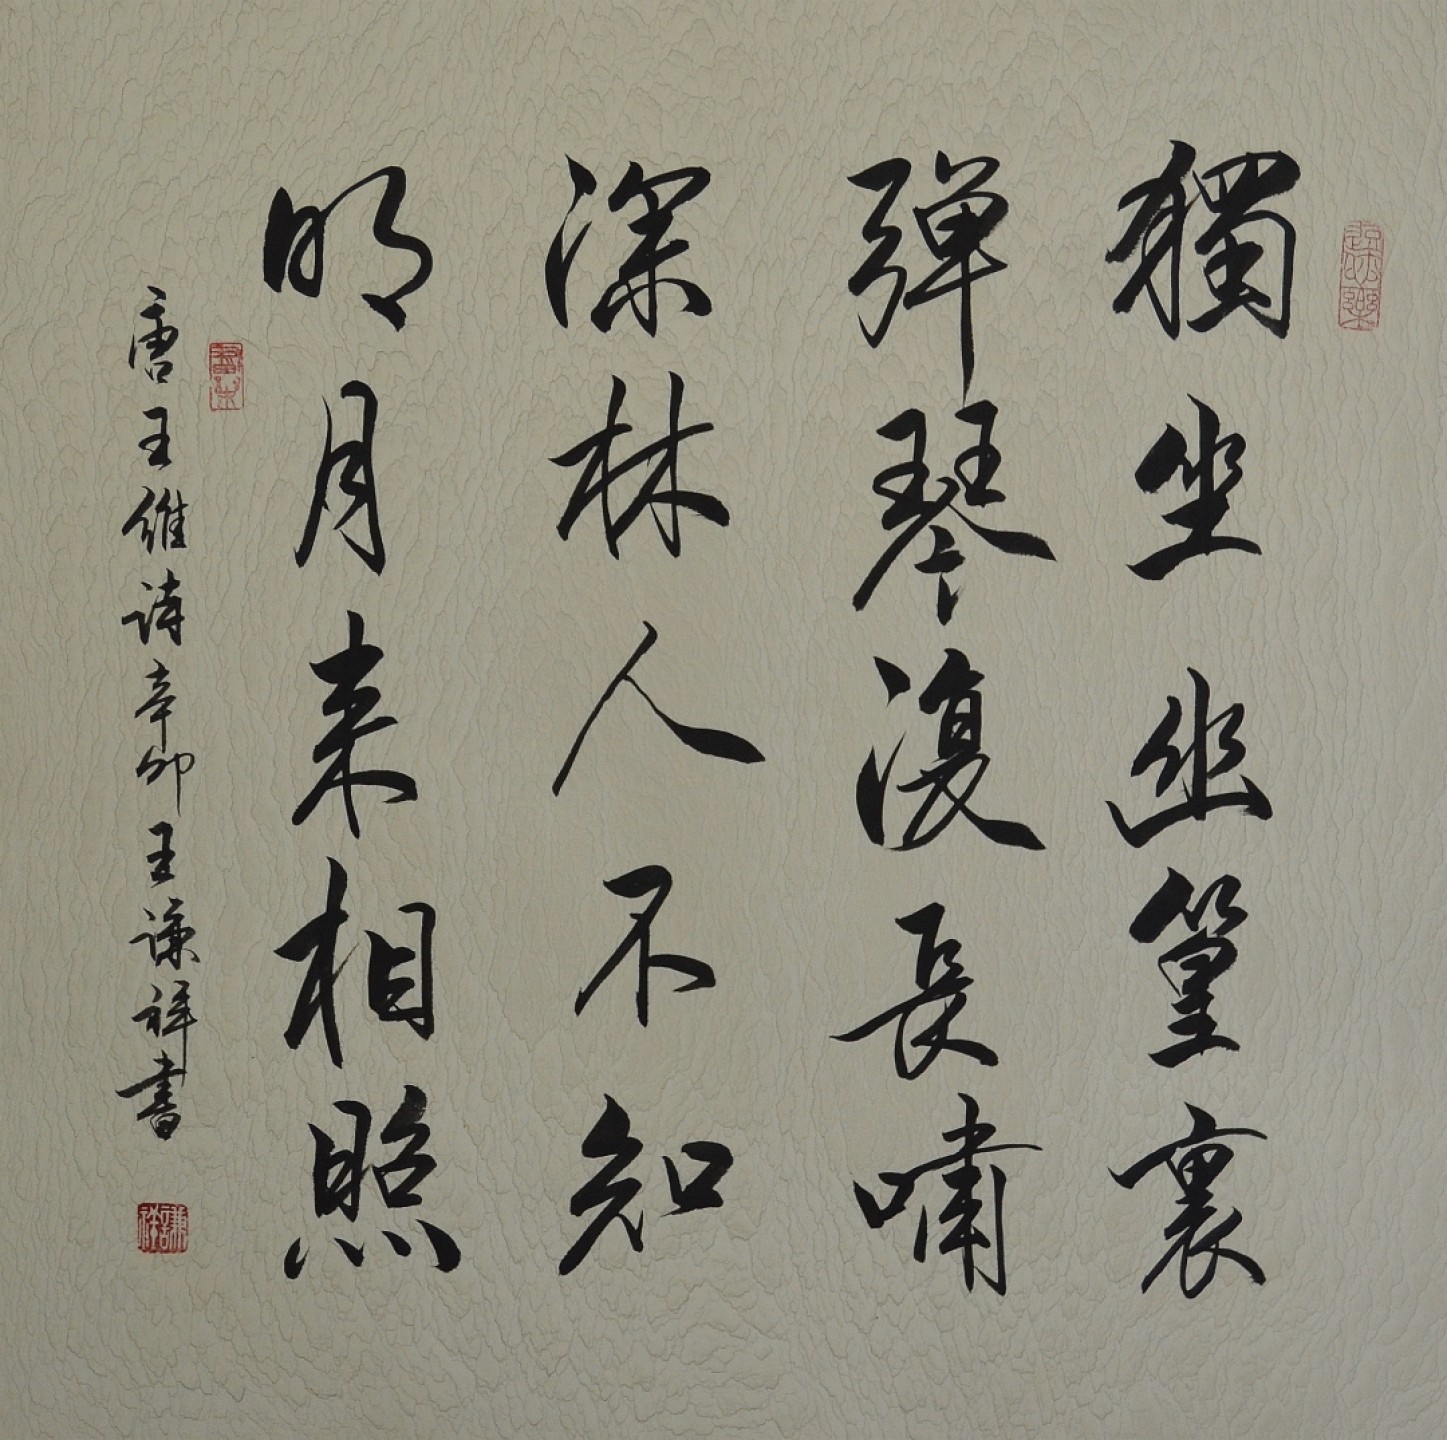 獨坐幽篁裏
弹琴復長嘯
深林人不知
明月来相照
唐王維詩辛卯王谦祥書
謙祥